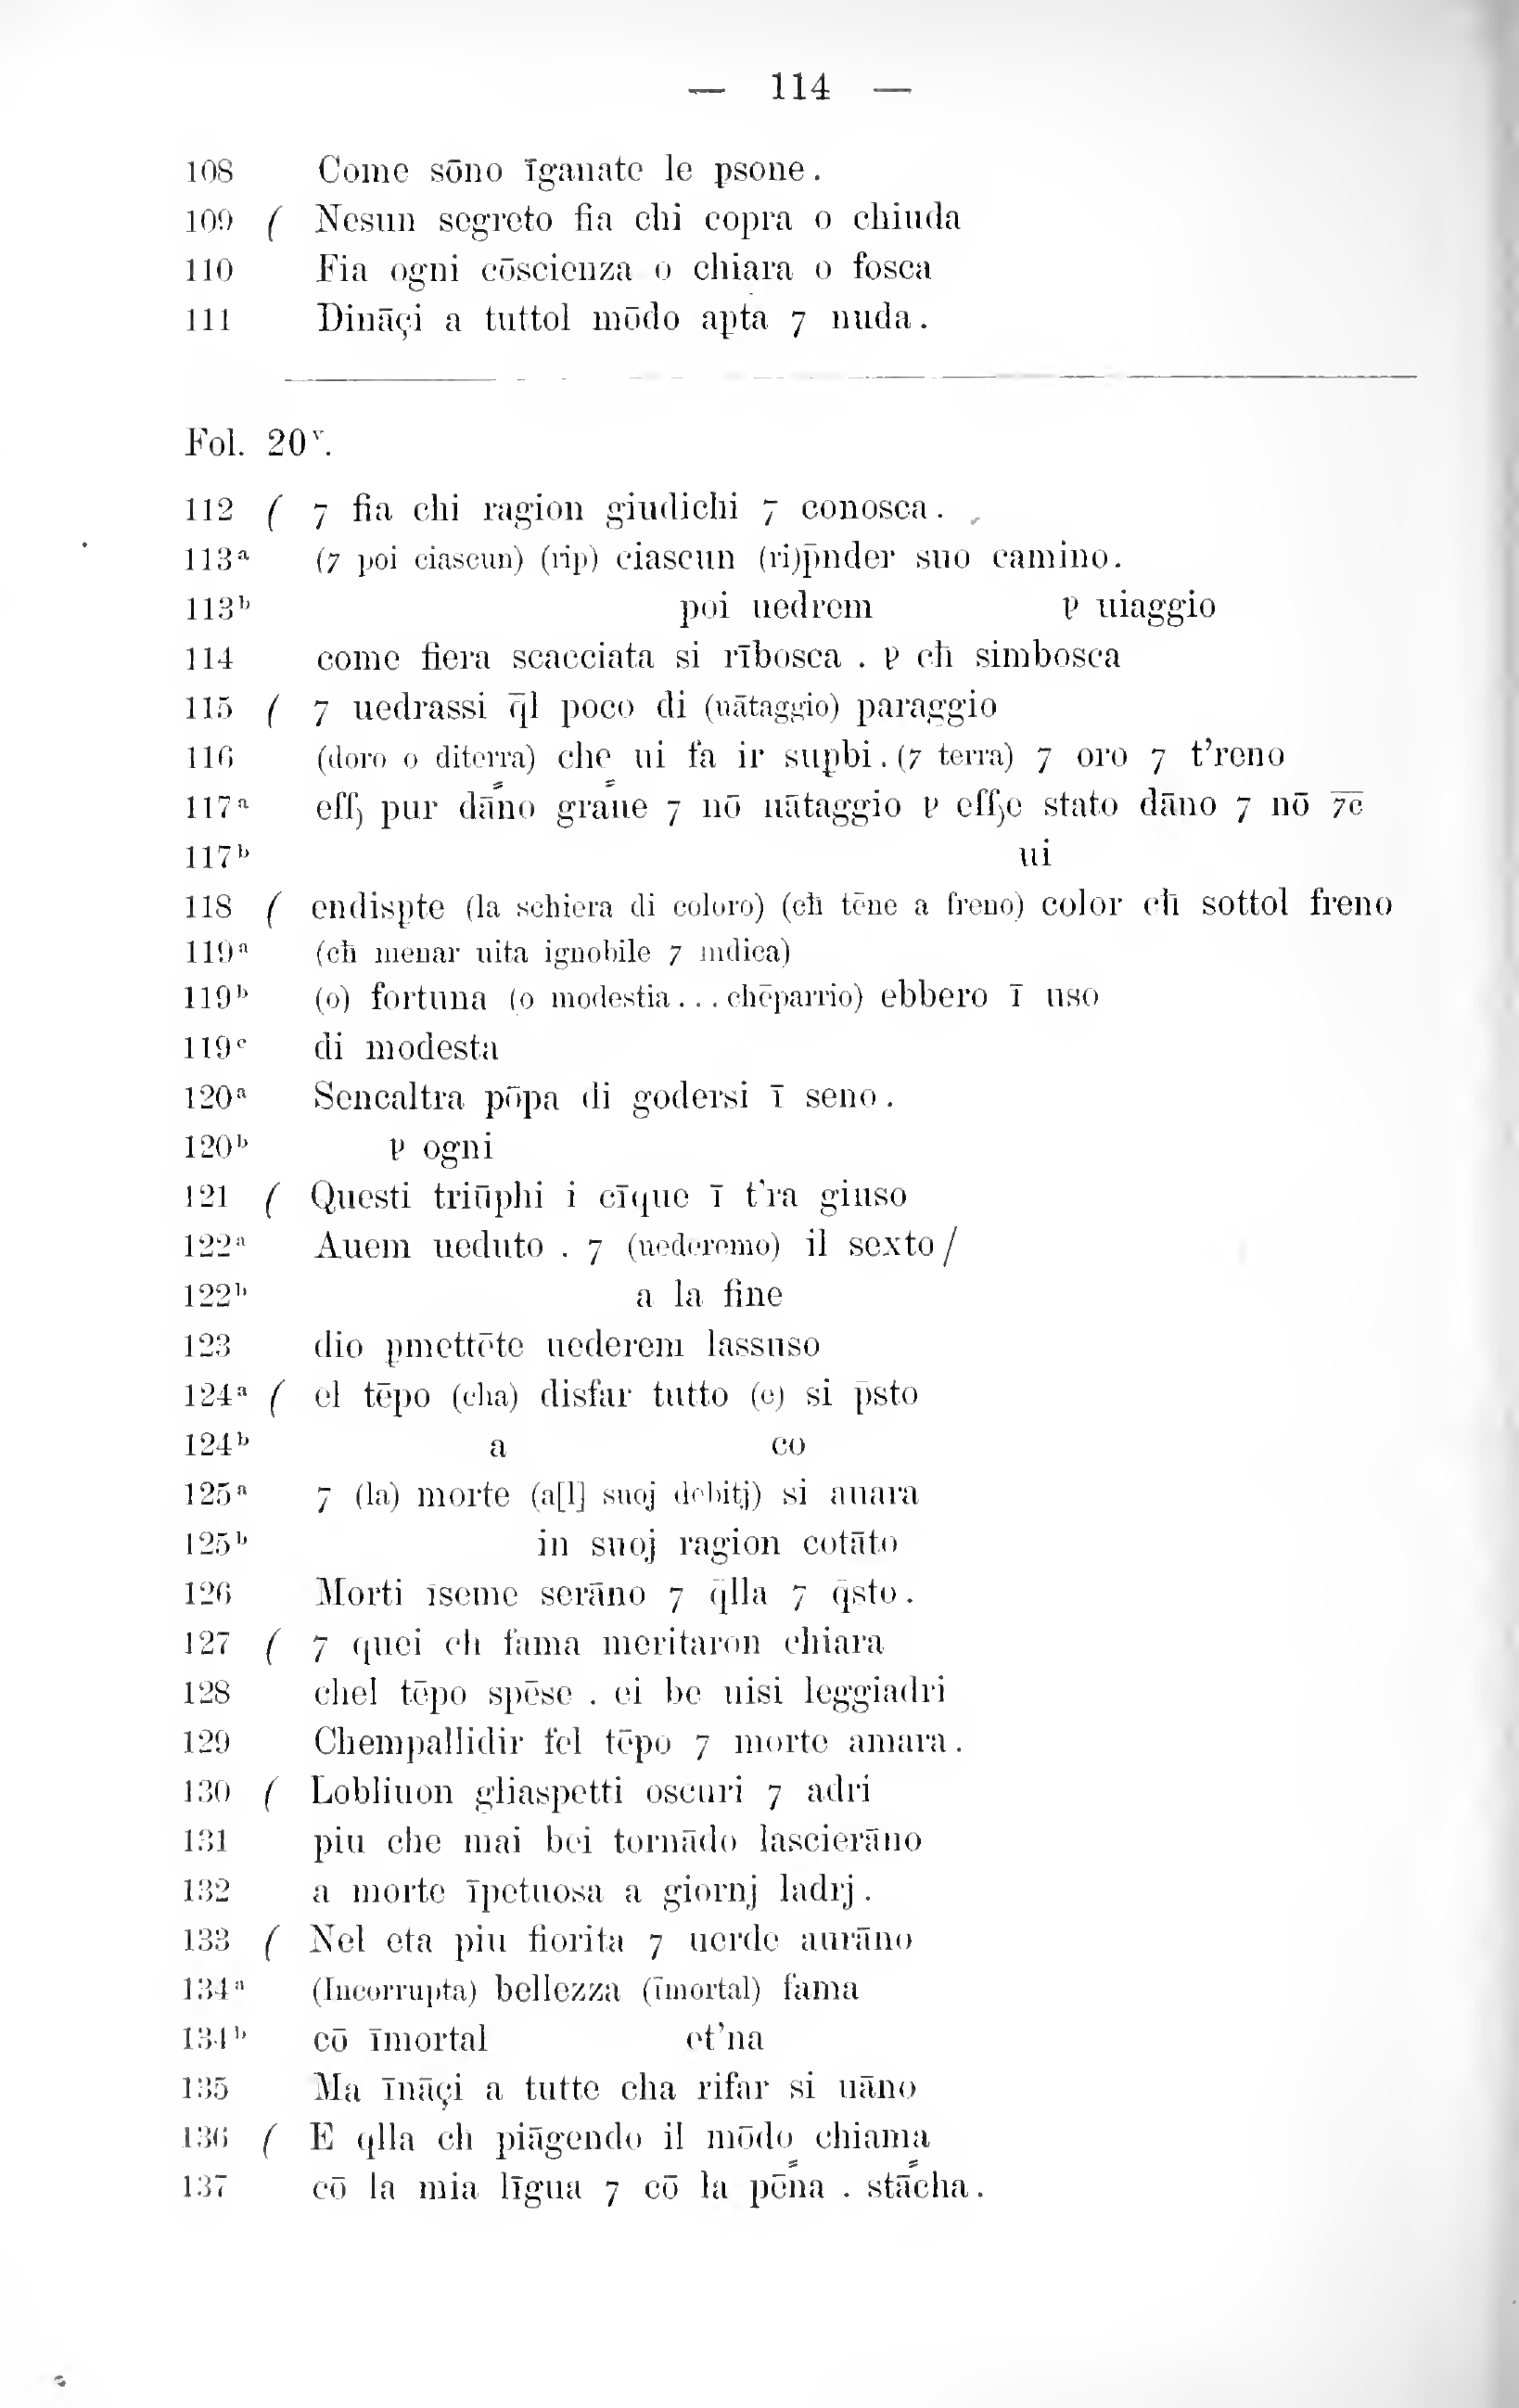 — 114 —
108 Come sōno īganate le psone .
109 ( Nesun segreto fia chi copra o chiuda
110 Fia ogni cōscienza o chiara o fosca
111 Dināçi a tuttol mōdo apta 7 nuda .
Fol. 20ᵛ.
112 ( 7 fia chi ragion giudichi 7 conosca .
113ᵃ (7 poi ciascun) (rip) ciascun (ri)p̄nder suo camino .
113ᵇ poi uedrem ꝑ uiaggio
114 come fiera scacciata si rībosca . ꝑ ch̄ simbosca
115 ( 7 uedrassi q̄l poco di (uātaggio) paraggio
116 (doro o diterra) che ui fa ir supbi . (7 terra) 7 oro 7 t’reno
117ᵃ pur dāno graue 7 nō uātaggio ꝑ stato dāno 7 nō 7̅c̅
117ᵇ ui
118 ( endispte (la schiera di coloro) (ch̄ tēne a freno) color ch̄ sottol freno
119ᵃ (ch̄ menar uita ignobile 7 mdica)
119ᵇ (o) fortuna (o modestia . . . chēparrio) ebbero ī uso
119ᶜ di modesta
120ᵃ Sencaltra pōpa di godersi ī seno .
120ᵇ ꝑ ogni
121 ( Questi triūphi i cīque ī t’ra giuso
122ᵃ Auem ueduto . 7 (uederemo) il sexto /
122ᵇ a la fine
123 dio pmettēte uederem lassuso
124ᵃ ( el tēpo (cha) disfar tutto (e) si p̄sto
124ᵇ a co
125ᵃ 7 (la) morte (a[l] suoj debitj) si auara
125ᵇ in suoj ragion cotāto
126 Morti īseme serāno 7 q̄lla 7 q̄sto .
127 ( 7 quei ch fama meritaron chiara
128 chel tēpo spēse . ei be uisi leggiadri
129 Chempallidir fel tēpo 7 morte amara .
130 ( Lobliuon gliaspetti oscuri 7 adri
131 piu che mai bei tornādo lascierāno
132 a morte īpetuosa a giornj ladrj .
133 ( Nel eta piu fiorita 7 uerde aurāno
134ᵃ (Incorrupta) bellezza (īmortal) fama
134ᵇ cō īmortal et’na
135 Ma īnāçi a tutte cha rifar si uāno
136 ( E qlla ch piāgendo il mōdo chiama
137 cō la mia līgua 7 cō la pēna . stācha .